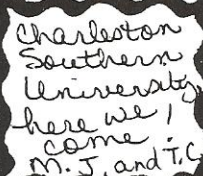 Charleston
Southern
University,
here we
come!
M. J. and T. C.